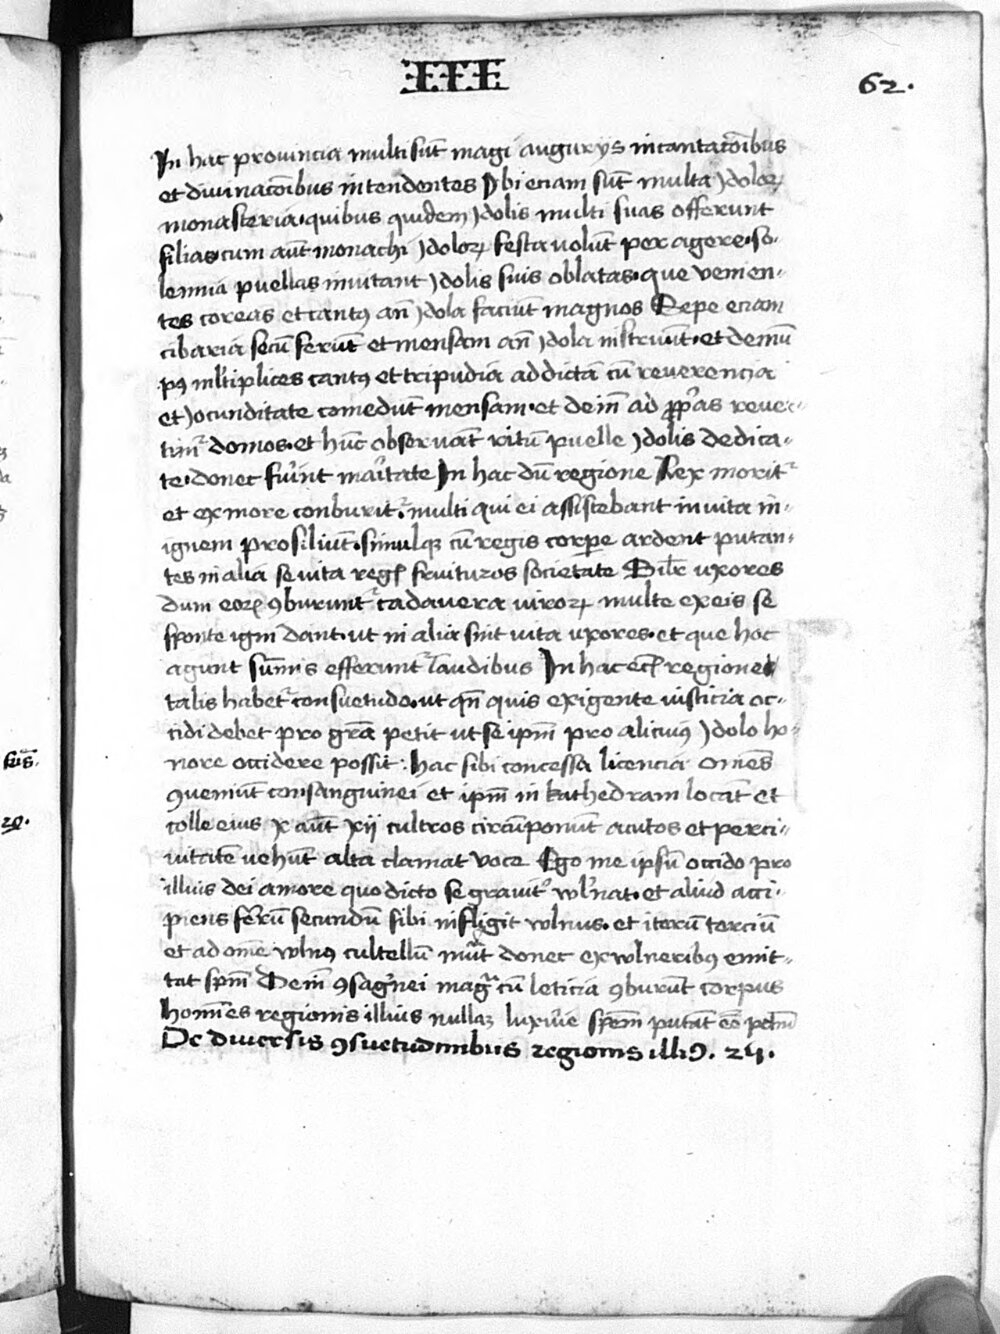 III
62.
In hac prouincia multi sūt magi augurys incantacōibus
et diuinacōibus intendentes Vbi eciam sūt multa ydoloꝝ
monasteria quibus quidem ydolis multi suas offerunt
filias cum aūt monachi ydoloꝝ festa volūt peragere so-
lemnia puellas inuitant ydolis suis oblatas que venien-
tes coreas et cantꝰ an̄ ydola faciūt magnos Sepe eciam
cibaria secū ferūt et mensam an̄ ydola instruūt et demū
pꝰ ml'tiplices cantꝰ et tripudia addictā cū reuerencia
et Jocunditate comedūt mensam et dein̄ ad ꝓp'as reuer-
tūt' domos et hūc obseruāt ritū puelle ydolis dedica-
te donec fu'int mar'tate In hac dū regione Rex morit'
et ex more conburit' multi qui ei assistebant in vita in
ignem prosiliūt simulqꝫ cū regis corpe ardent putan-
tes in alia se vita reg' fruituros societate Silr uxores
dum eoꝝ ꝯburunt' cadauera viroꝝ multe ex eis se
sponte igni dant vt in alia sint vita uxores et que hoc
agunt sūmis efferunt' laudibus In hac ec̄ regione
talis habet' consuetudo vt qn̄ quis exigente iusticia oc-
cidi debet pro grā petit vt se ipm̄ pro alicuiꝰ ydolo ho-
nore occidere possit hac sibi concessa licencia om̄es
ꝯueniūt consanguinei et ipm̄ in kathedram locāt et
colle eius x aūt xij cultros circūponūt acutos et per ci-
uitatē vehūt alta clamat voce Ego me ipsū occido pro
illius dei amore quo dicto se grauit' vl'nat et aliud acci-
piens ferrū secundū sibi infligit vlnus et iterū terciū
et ad om̄e vlnꝰ cultellū mūt donec ex vlneribꝰ emit-
tat spm̄ Dein̄ ꝯsag'nei mag' cū leticia ꝯburūt corpus
Homīes regionis illius nullaꝫ luxu'ie spēm putāt eē pctm̄
De diuersis ꝯsuetudinibus regionis illiꝰ. 24.